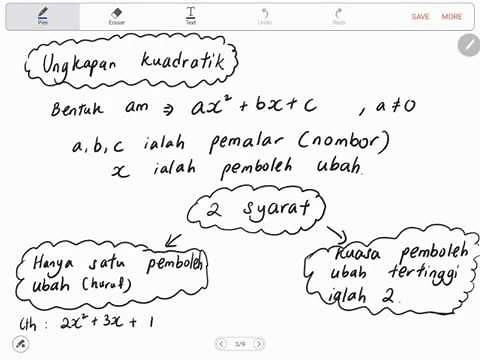 Pen
Eraser
Text
Undo
Redo
SAVE
MORE
Ungkapan kuadratik
Bentuk am ⇒ ax² + bx + c , a ≠ 0
a, b, c ialah pemalar (nombor)
x ialah pemboleh ubah.
2 syarat
Hanya satu pemboleh
ubah (huruf)
Kuasa pemboleh
ubah tertinggi
ialah 2.
Cth : 2x² + 3x + 1
3/9